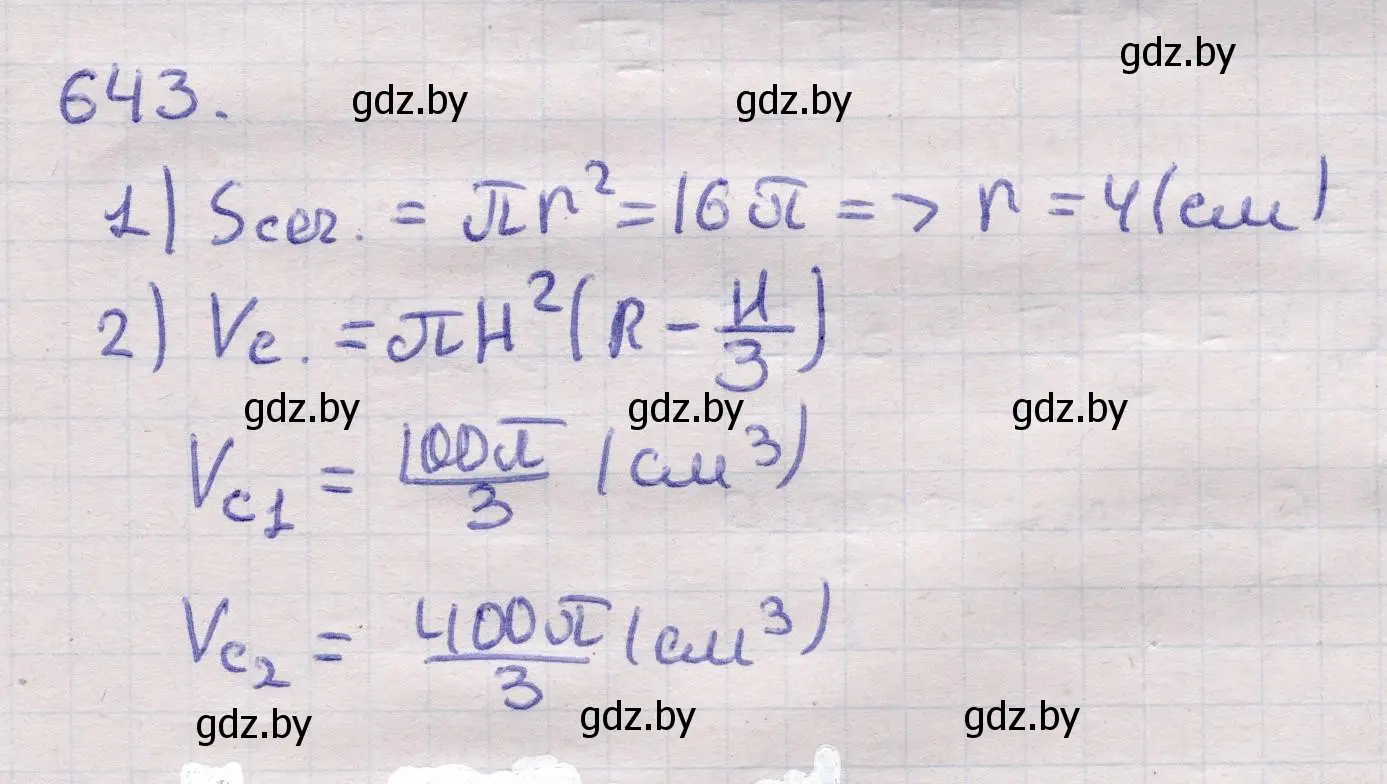 gdz.by
643. gdz.by gdz.by
1) Sсег. = πr² = 16π => r = 4 (см)
2) Vс. = πH² (R - H/3)
gdz.by gdz.by gdz.by
Vс1 = 100π/3 (см³)
Vс2 = 400π/3 (см³)
gdz.by gdz.by gdz.by